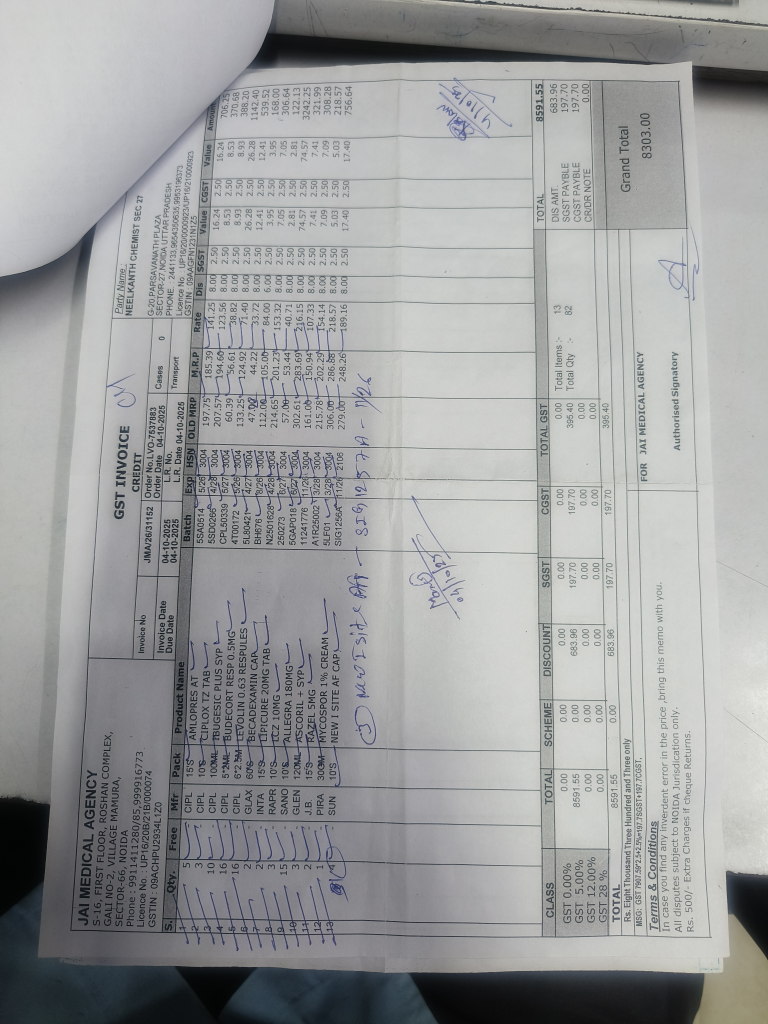 JAI MEDICAL AGENCY
S-16, FIRST FLOOR, ROSHAN COMPLEX,
GALI NO-2, VILLAGE MAMURA,
SECTOR-66, NOIDA
Phone : 9911411280/85,999916773
Licence No : UP16/20B/21B/000074
GSTIN : 09AOHPU2934L1Z0
GST INVOICE
CREDIT
Invoice No JMA/26/31152 Order No.LVO-7637883
Order Date 04-10-2025
Cases 0
Invoice Date 04-10-2025 L.R. No.
Due Date 04-10-2025 L.R. Date 04-10-2025
Transport
Party Name :
NEELKANTH CHEMIST SEC 27
G-20,PARSAVANATH PLAZA
SECTOR-27,NOIDA UTTAR PRADESH
PHONE : 2441133,9654350635,9953196373
S. Qty. Free Mfr Pack Product Name Batch Exp HSN OLD MRP M.R.P Rate Dis SGST Value CGST Value Amount
1 5 CIPL 15'S AMLOPRES AT 5SA0514 5/28 3004 197.75 185.39 141.25 8.00 2.50 16.24 2.50 16.24 706.25
2 3 CIPL 10'S CIPLOX TZ TAB 5SD0266 4/28 3004 207.57 194.60 123.56 8.00 2.50 8.53 2.50 8.53 370.68
3 10 CIPL 100ML IBUGESIC PLUS SYP CPL50339 5/27 3004 60.39 56.61 38.82 8.00 2.50 8.93 2.50 8.93 388.20
4 16 CIPL BUDECORT RESP 0.5MG 4T00172 3004 133.25 124.92 71.40 8.00 2.50 26.28 2.50 26.28 1142.40
5 16 CIPL 6*2.5M LEVOLIN 0.63 RESPULES 5L80421 4/27 3004 44.22 33.72 8.00 2.50 12.41 2.50 12.41 539.52
6 2 GLAX BECADEXAMIN CAP BH676 8/26 3004 112.00 105.00 84.00 6.00 2.50 3.95 2.50 3.95 168.00
7 2 INTA 15'S LIPICURE 20MG TAB N2501628 4/28 3004 214.65 201.23 153.32 8.00 2.50 7.05 2.50 7.05 306.64
8 3 RAPR 10'S LCZ 10MG 250273 3004 57.00 53.44 40.71 8.00 2.50 2.81 2.50 2.81 122.13
9 15 SANO 10'S ALLEGRA 180MG 5GAP018 3004 302.61 283.69 216.15 8.00 2.50 74.57 2.50 74.57 3242.25
10 3 GLEN 120ML ASCORIL + SYP 11241776 11/26 3004 161.00 150.94 107.33 8.00 2.50 7.41 2.50 7.41 321.99
11 2 J.B. 15'S RAZEL 5MG A1R25002 3/28 3004 215.78 202.29 154.14 8.00 2.50 7.09 2.50 7.09 308.28
12 1 PIRA 30GM MYCOSPOR 1% CREAM 5LF01 3/28 3004 306.00 286.88 218.57 8.00 2.50 5.03 2.50 5.03 218.57
13 4 SUN 10'S NEW I SITE AF CAP SIG1256A 11/26 2106 279.00 248.26 189.16 8.00 2.50 17.40 2.50 17.40 756.64
04/10/25
4/10/25
CLASS TOTAL SCHEME DISCOUNT SGST CGST TOTAL GST
GST 0.00% 0.00 0.00 0.00 0.00 0.00 0.00
GST 5.00% 8591.55 0.00 683.96 197.70 197.70 395.40
GST 12.00% 0.00 0.00 0.00 0.00 0.00 0.00
GST 28 % 0.00 0.00 0.00 0.00 0.00 0.00
TOTAL 8591.55 0.00 683.96 197.70 197.70 395.40
Total Items :- 13
Total Qty :- 82
TOTAL 8591.55
DIS AMT. 683.96
SGST PAYBLE 197.70
CGST PAYBLE 197.70
CR/DR NOTE 0.00
Grand Total
8303.00
Rs. Eight Thousand Three Hundred and Three only
MSG: GST 7907.59*2.5+2.5%=197.7SGST+197.7CGST,
Terms & Conditions
In case you find any inverdent error in the price ,bring this memo with you.
All disputes subject to NOIDA Jurisdication only.
Rs. 500/- Extra Charges if cheque Returns.
FOR JAI MEDICAL AGENCY
Authorised Signatory